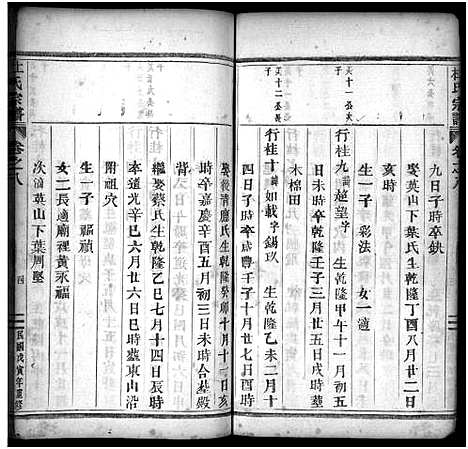 九日子時卒缺
娶英山下葉氏生乾隆丁酉八月廿二日
亥時
生一子彩法 女一適
行桂九諱越望字 生乾隆甲午十一月初五
日未時卒乾隆壬子三月廿五日戌時塟
木棉田
行桂十諱如載字錫玖 生乾隆乙未二月十
四日子時卒咸豐壬子十月廿七日酉時
娶後清應氏生乾隆癸卯十月十一日亥
時卒嘉慶辛酉五月初三日未時合塟殿
繼娶蔡氏生乾隆乙巳七月十四日辰時
卒道光辛巳六月廿六日巳時塟東山沿
附祖穴
生一子 福禎
女二長適廟裡黃永福
次適英山下葉周堅
杜氏宗譜 卷之八
四
民國戊寅年重修